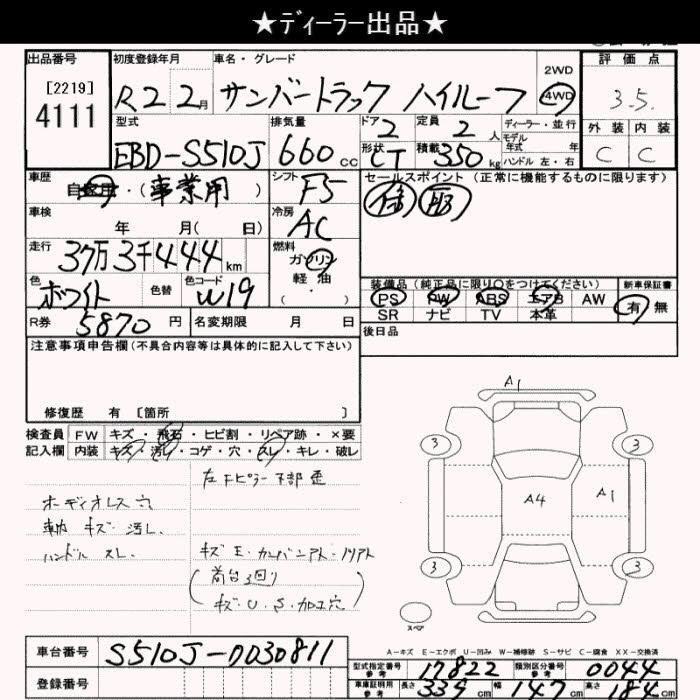 ★ディーラー出品★
出品番号
[2219]
4111
初度登録年月
R2 2月
車名・グレード
サンバートラック ハイルーフ
2WD
4WD
評価点
3.5
外装 内装
C C
型式
EBD-S510J
排気量
660cc
ドア
2
形状
CT
定員
2人
積載
350kg
ディーラー・並行
モデル
年式 年
ハンドル 左・右
車歴
自家用・(事業用)
シフト
F5
セールスポイント(正常に機能するものに限ります)
車検
年 月( 日)
冷房
AC
走行
37万3千444km
燃料
ガソリン
軽油
・( )
色
ホワイト
色替
色コード
W19
装備品(純正品に限り○をつけてください)
PS PW ABS エアB AW
SR ナビ TV 本革
新車保証書
有 無
R券 5870円
名変期限 月 日
後日品
注意事項申告欄(不具合内容等は具体的に記入して下さい)
修復歴 有 [箇所 ]
検査員
記入欄
FW キズ・飛石・ヒビ割・リペア跡・×要
内装 キズ・汚レ・コゲ・穴・スレ・キレ・破レ
左Fピラー下部歪
ボーディオレス穴
キズ・汚レ
ハンドルスレ
キズ・E・カーバニアト・ノリアト
(荷台3回り
キズ・U・S・加工穴)
A1
3
3
A4
A1
3
3
スペア
A-キズ E-エクボ U-凹み W-補修跡 S-サビ C-腐食 XX-交換済
車台番号
S510J-0030811
登録番号
型式指定番号
参考
17822
類別区分番号
参考
0044
車庫証明用
参考
長さ 339cm 幅 147cm 高さ 184cm